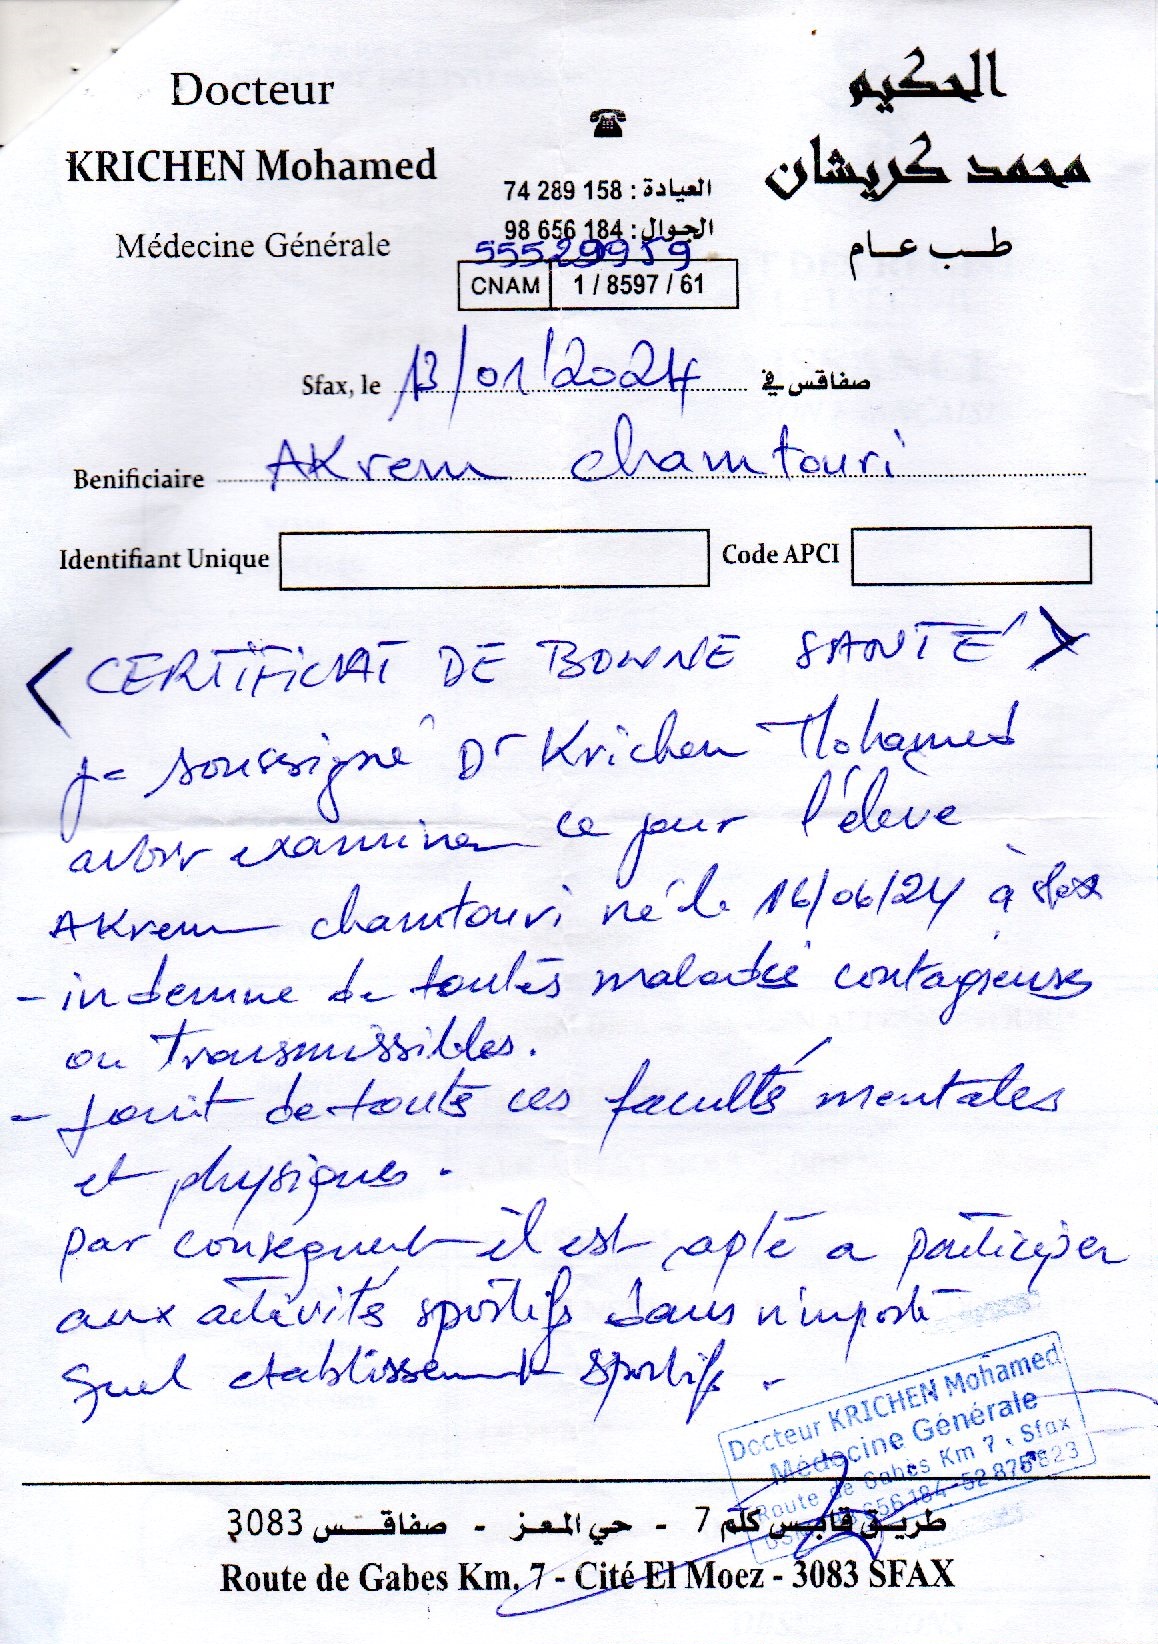 Docteur
KRICHEN Mohamed
Médecine Générale
العيادة : 158 289 74
الجوال : 184 656 98
55529959
CNAM 1 / 8597 / 61
الحكيم
محمد كريشان
طب عام
Sfax, le 13/01/2024 صفاقس في
Benificiaire AKrem chamtouri
Identifiant Unique Code APCI
< CERTIFICAT DE BONNE SANTÉ >
je soussigné Dr Krichen Mohamed
avoir examiner ce jour l'élève
AKrem chamtouri né le 16/06/24 à sfax
- indemne de toutes maladie contagieuses
ou transmissibles.
- jouit de toute ces facultés mentales
et physiques.
par conséquent il est apte a participer
aux activités sportifs dans n'importe
quel etablissement sportifs.
Docteur KRICHEN Mohamed
Médecine Générale
Route de Gabès Km 7 , Sfax
656 184 - 52 876 823
طريق قابس كلم 7 - حي المعز - صفاقس 3083
Route de Gabes Km. 7 - Cité El Moez - 3083 SFAX